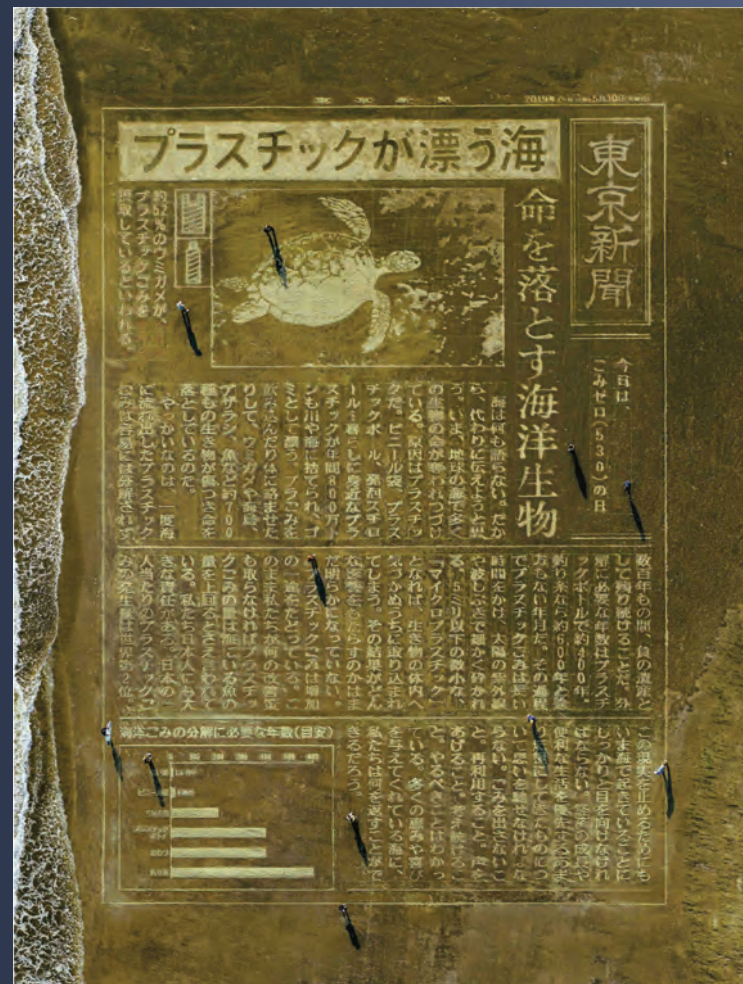 東京新聞
2019年
5月30日
東京新聞
プラスチックが漂う海
命を落とす海洋生物
今日は、
ごみゼロ(530)の日
約52%のウミガメが、
プラスチックごみを
摂取しているといわれる。
海は何も語らない。だか
ら、代わりに伝えようと思
う。いま、地球の海で多く
の生物の命が奪われつづけ
ている。原因はプラスチッ
クだ。ビニール袋、プラス
チックボトル、発泡スチロ
ール…暮らしに身近なプラ
スチックが年間800万ト
ンも川や海に捨てられ、ゴ
ミとして漂う。プラごみを
飲み込んだり体に絡ませた
りして、ウミガメや海鳥、
アザラシ、魚など約700
種もの生き物が傷つき命を
落としているのだ。
やっかいなのは、一度海
に流出したプラスチック
ごみは容易には分解されず
数百年もの間、負の遺産と
して残り続けることだ。分
解に必要な年数はプラスチ
ックボトルで約400年。
釣り糸なら約600年と途
方もない年月だ。その過程
でプラスチックごみは長い
時間をかけ、太陽の紫外線
や波しぶきで細かく砕かれ
る。5ミリ以下の微小な、
「マイクロプラスチック」
となれば、生き物の体内へ
気づかぬうちに取り込まれ
てしまう。その結果がどん
な影響をもたらすのかはま
だ明らかとなっていない。
プラスチックごみは増加
の一途をたどっている。こ
のまま私たちが何の改善策
も取らなければプラスチッ
クごみの量は海にいる魚の
量を上回るとさえ言われて
いる。私たち日本人にも大
きな責任がある。日本の一
人当たりのプラスチックご
みの発生量は世界第2位。
この現実を止めるためにも
いま海で起きていることに
しっかりと目を向けなけれ
ばならない。経済の成長や
便利な生活を優先するあま
犠牲にしてきたものにつ
いて思いを馳せなければな
らない。ごみを出さないこ
と。再利用すること。声を
あげること。考え続けるこ
と。やるべきことはわかっ
ている。多くの恵みや喜び
を与えてくれている海に、
私たちは何を返すことがで
きるだろう。
海洋ごみの分解に必要な年数(目安)